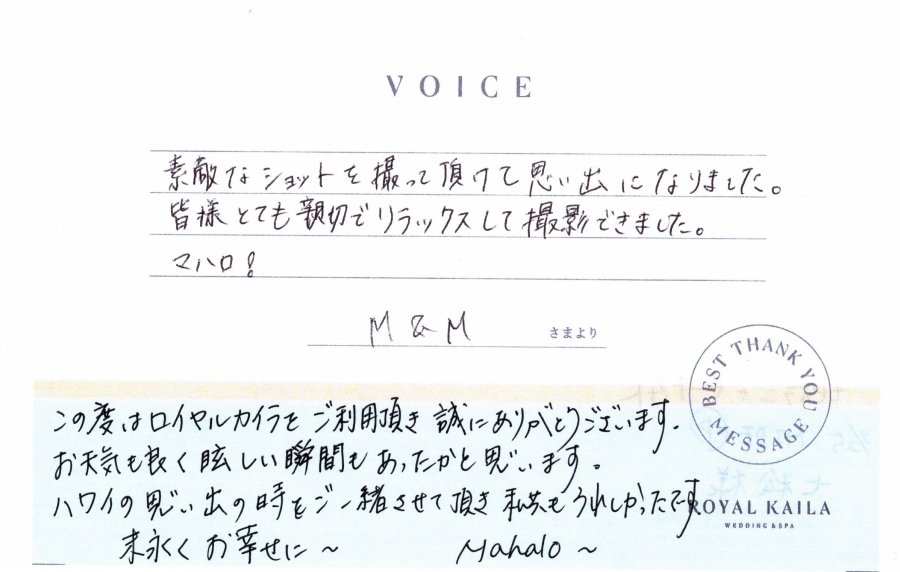 VOICE
素敵なショットを撮って頂けて思い出になりました。
皆様とても親切でリラックスして撮影できました。
マハロ!
M & M さまより
BEST THANK YOU MESSAGE
この度はロイヤルカイラをご利用頂き誠にありがとうございます.
お天気も良く眩しい瞬間もあったかと思います。
ハワイの思い出の時をご一緒させて頂き私共もうれしかったです
ROYAL KAILA
WEDDING & SPA
末永くお幸せに〜 Mahalo〜